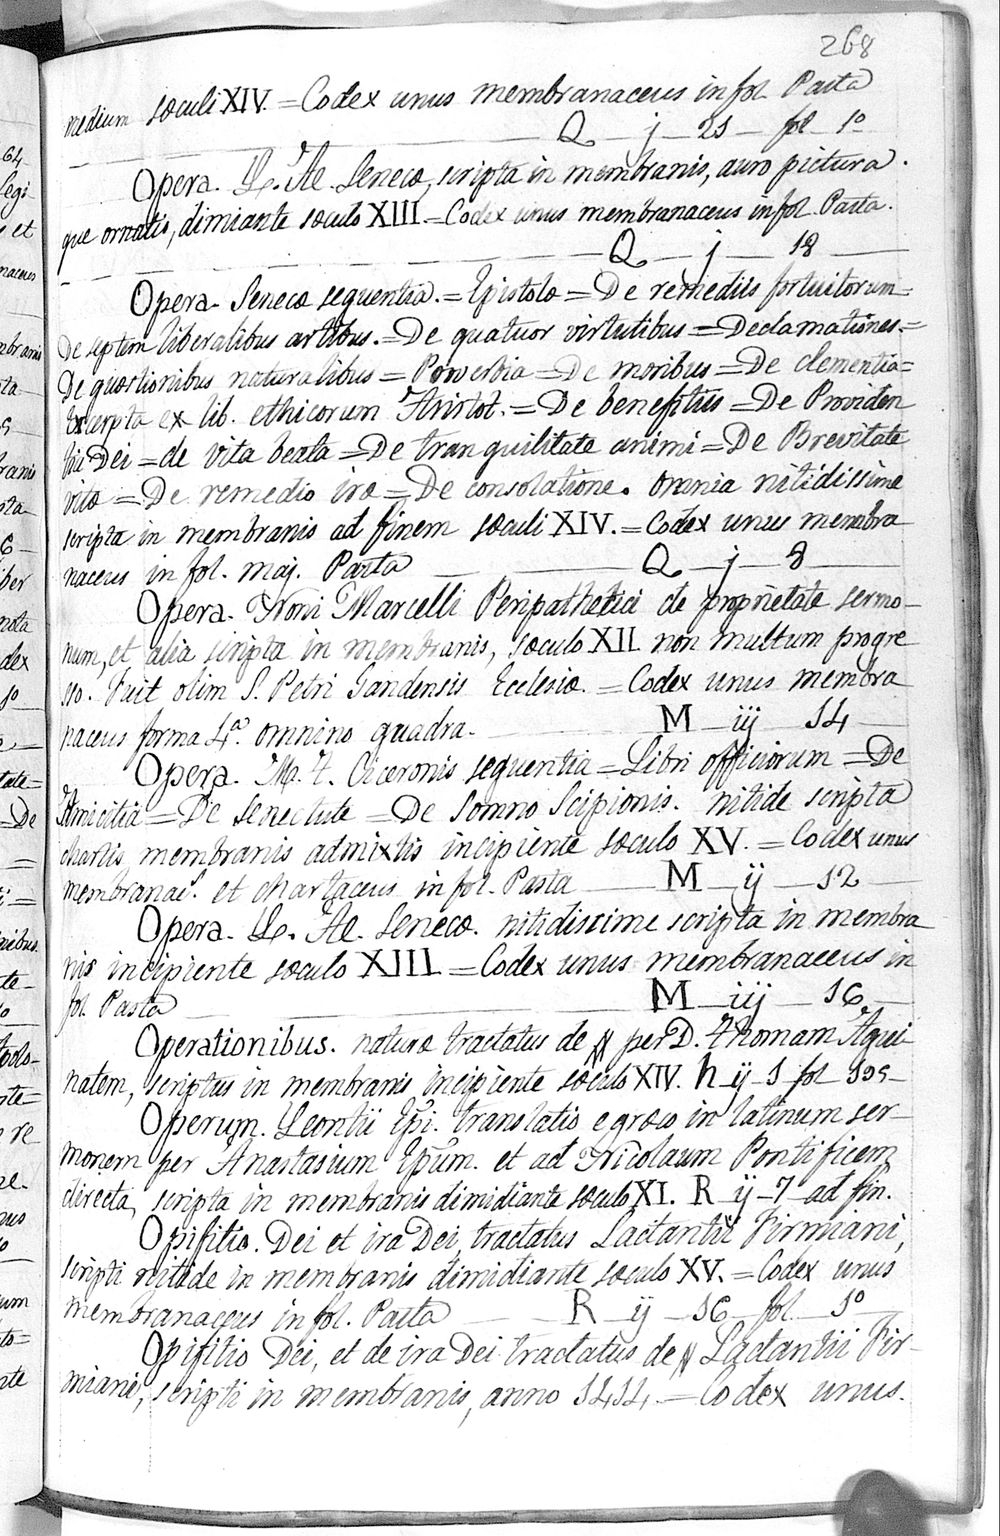 268
medium sæculi XIV. = Codex unus membranaceus in fol. Pasta
Q j 21 fol 1º
Opera. L. Æ. Senecæ, scripta in membranis, auro pictura
que ornatis, dimiante sæculo XIII = Codex unus membranaceus in fol. Pasta.
Q j 18
Opera. Senecæ sequentia. = Epistolæ = De remediis fortuitorum =
De septem liberalibus artibus. = De quatuor virtutibus = Declamationes. =
De quæstionibus naturalibus = Proverbia = De moribus = De clementia =
Excerpta ex lib. ethicorum Aristot. = De benefitiis = De Providen
tia Dei = de vita beata = De tranquilitate animi = De Brevitate
vitæ = De remedio iræ = De consolatione. omnia nitidissime
scripta in membranis ad finem sæculi XIV. = Codex unus membra
naceus in fol. maj. Pasta Q j 8
Opera. Noni Marcelli Peripathetici de proprietate sermo-
num, et alia scripta in membranis, sæculo XII non multum progre
sso. Fuit olim S. Petri Gandensis Ecclesiæ. = Codex unus membra
naceus forma 4ª. omnino quadra. M iij 14
Opera. M. T. Ciceronis sequentia = Libri officiorum = De
Amicitia = De Senectute = De Somno Scipionis. nitide scripta
chartis membranis admixtis incipiente sæculo XV. = Codex unus
membranacˢ. et chartaceus in fol. Pasta M ij 12
Opera. L. Æ. Senecæ. nitidissime scripta in membra
nis incipiente sæculo XIII = Codex unus membranaceus in
fol. Pasta M iij 16
Operationibus. naturæ tractatus de // per D. Thomam Aqui
natem, scriptus in membranis incipiente sæculo XIV. h ij 1 fol 105
Operum. Leontii Epi. translatio e græco in latinum ser-
monem per Anastasium Epum. et ad Nicolaum Pontificem
directa, scripta in membranis dimidiante sæculo XI. R ij 7 ad fin.
Opifitio. Dei et ira Dei, tractatus Lactantii Firmiani,
scripti nitide in membranis dimidiante sæculo XV. = Codex unus
membranaceus in fol. Pasta R ij 16 fol. 1º
Opifitio Dei, et de ira Dei tractatus de // Lactantii Fir-
miani, scripti in membranis, anno 1414 = Codex unus.